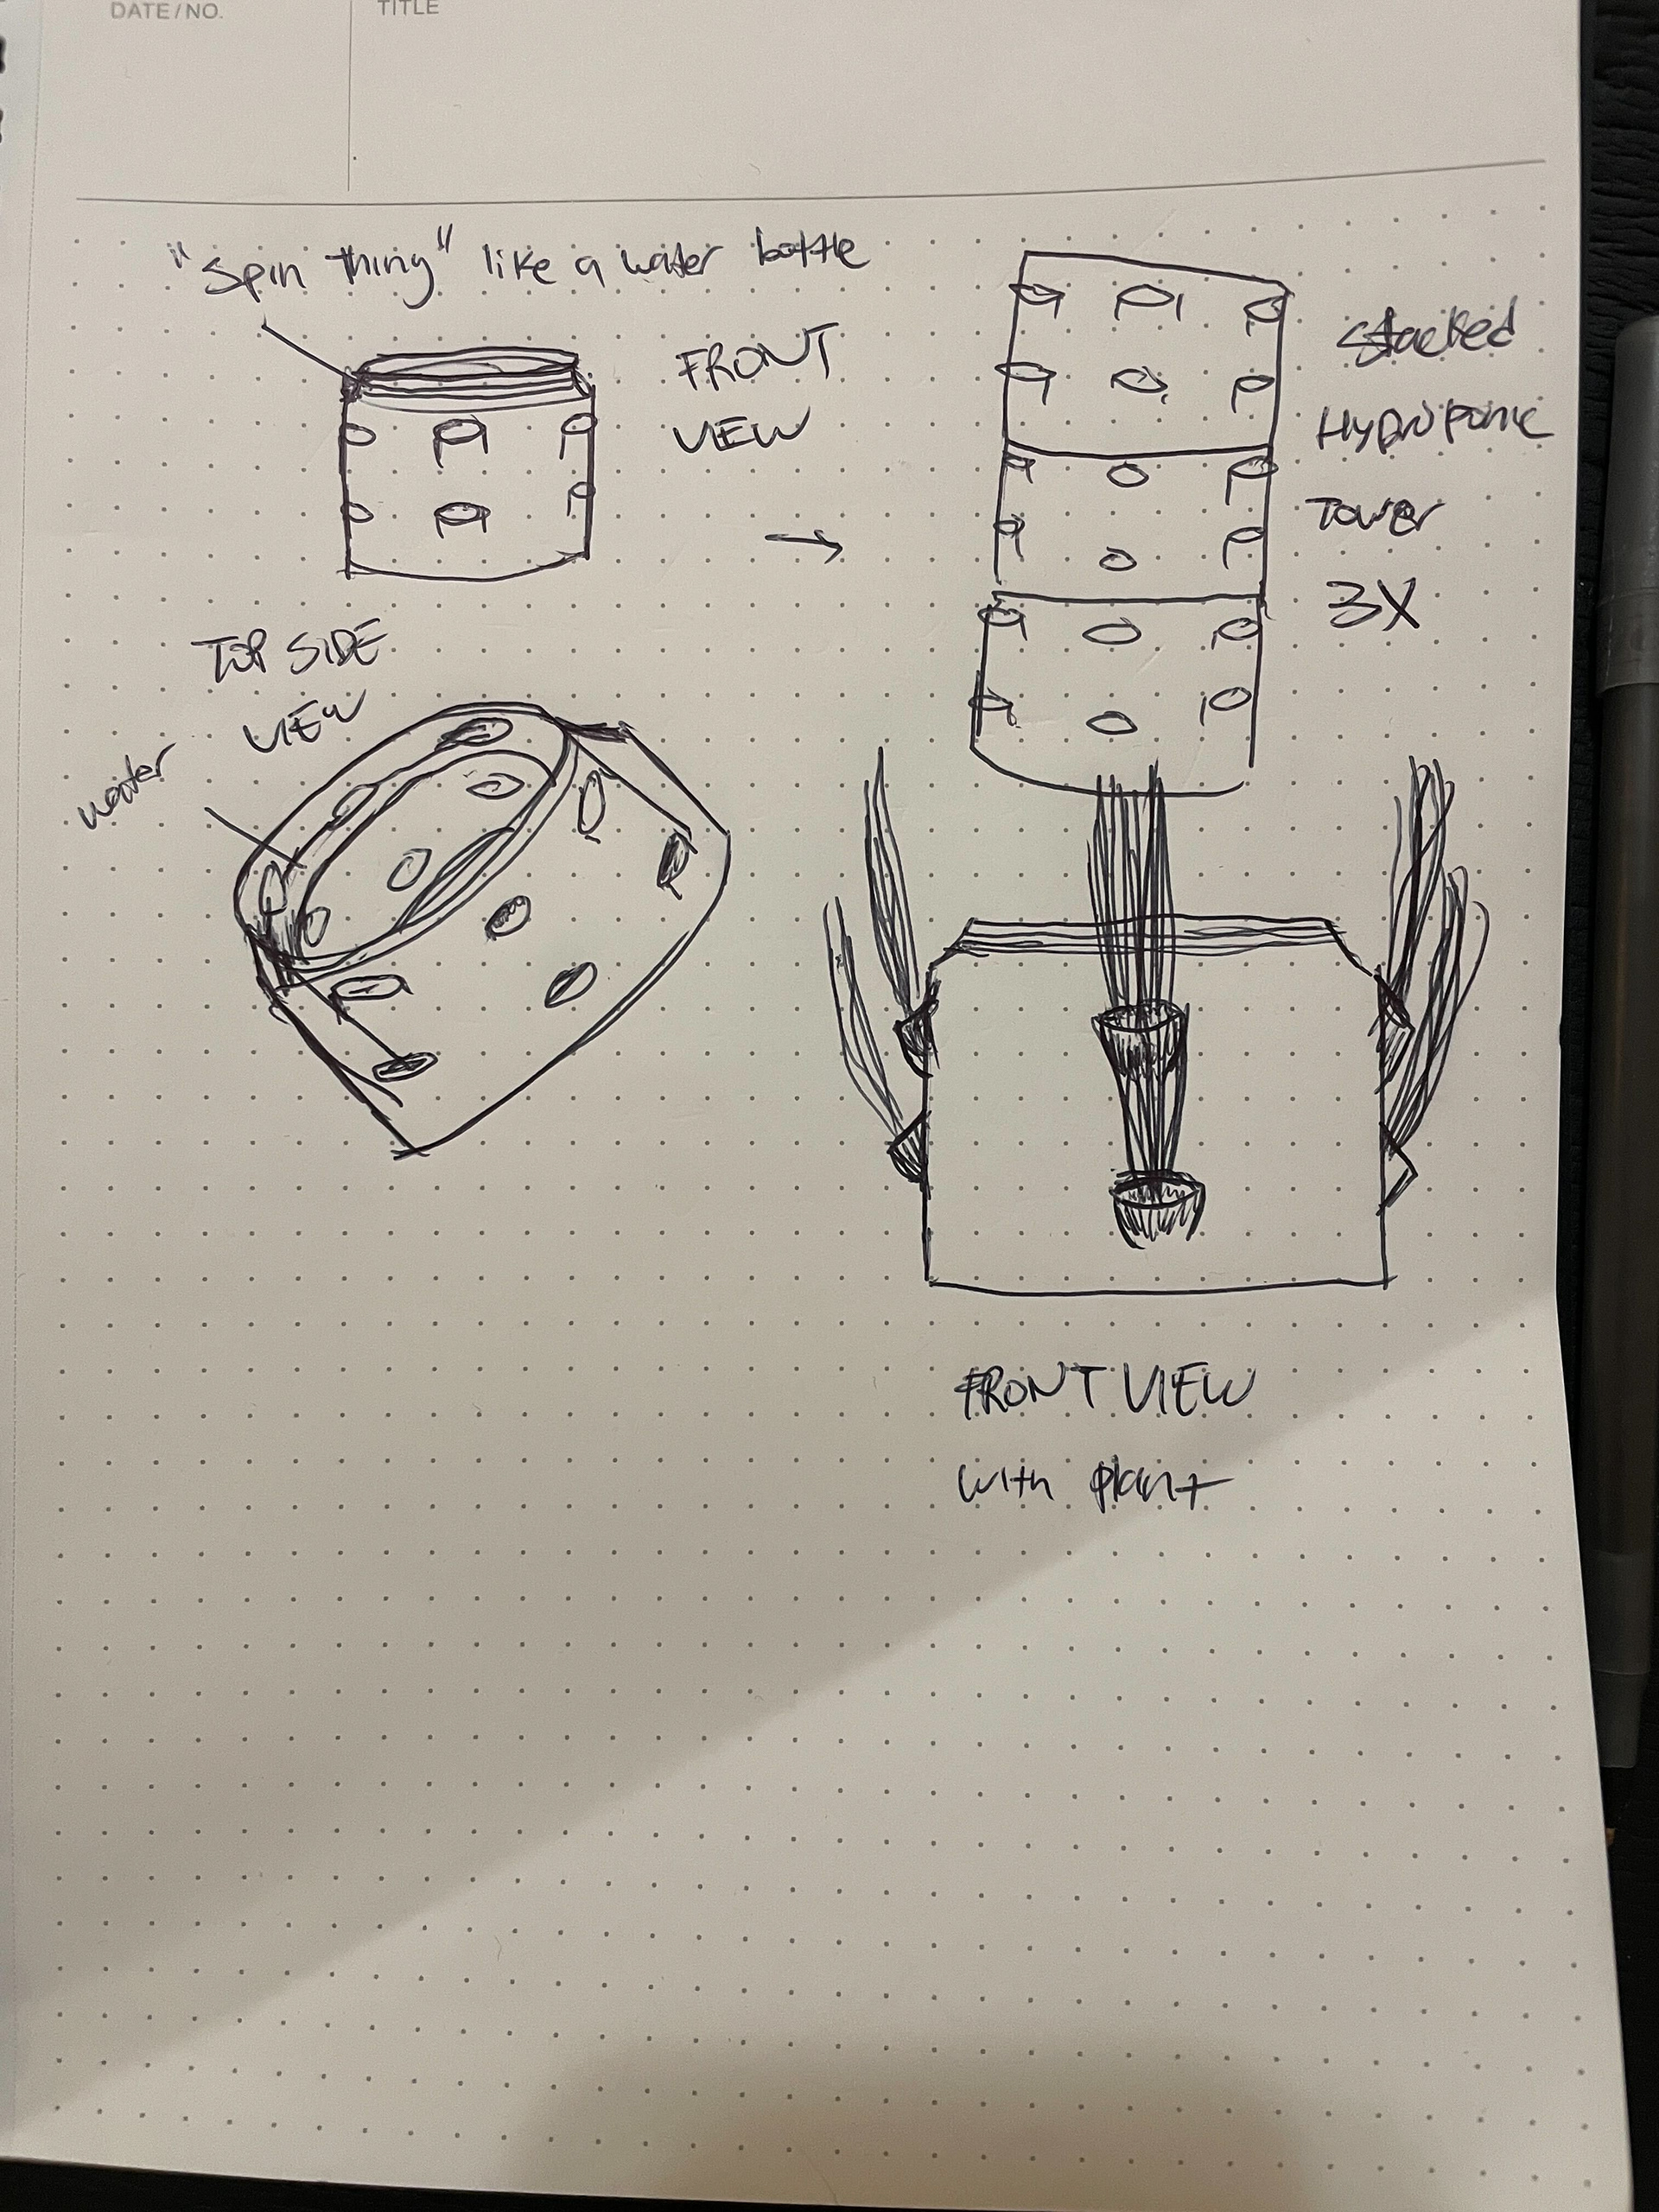 DATE/NO.
TITLE
"Spin thing" like a water bottle
FRONT
VIEW
Stacked
Hydroponic
Tower
3X
TOP SIDE
VIEW
water
FRONT VIEW
with plant